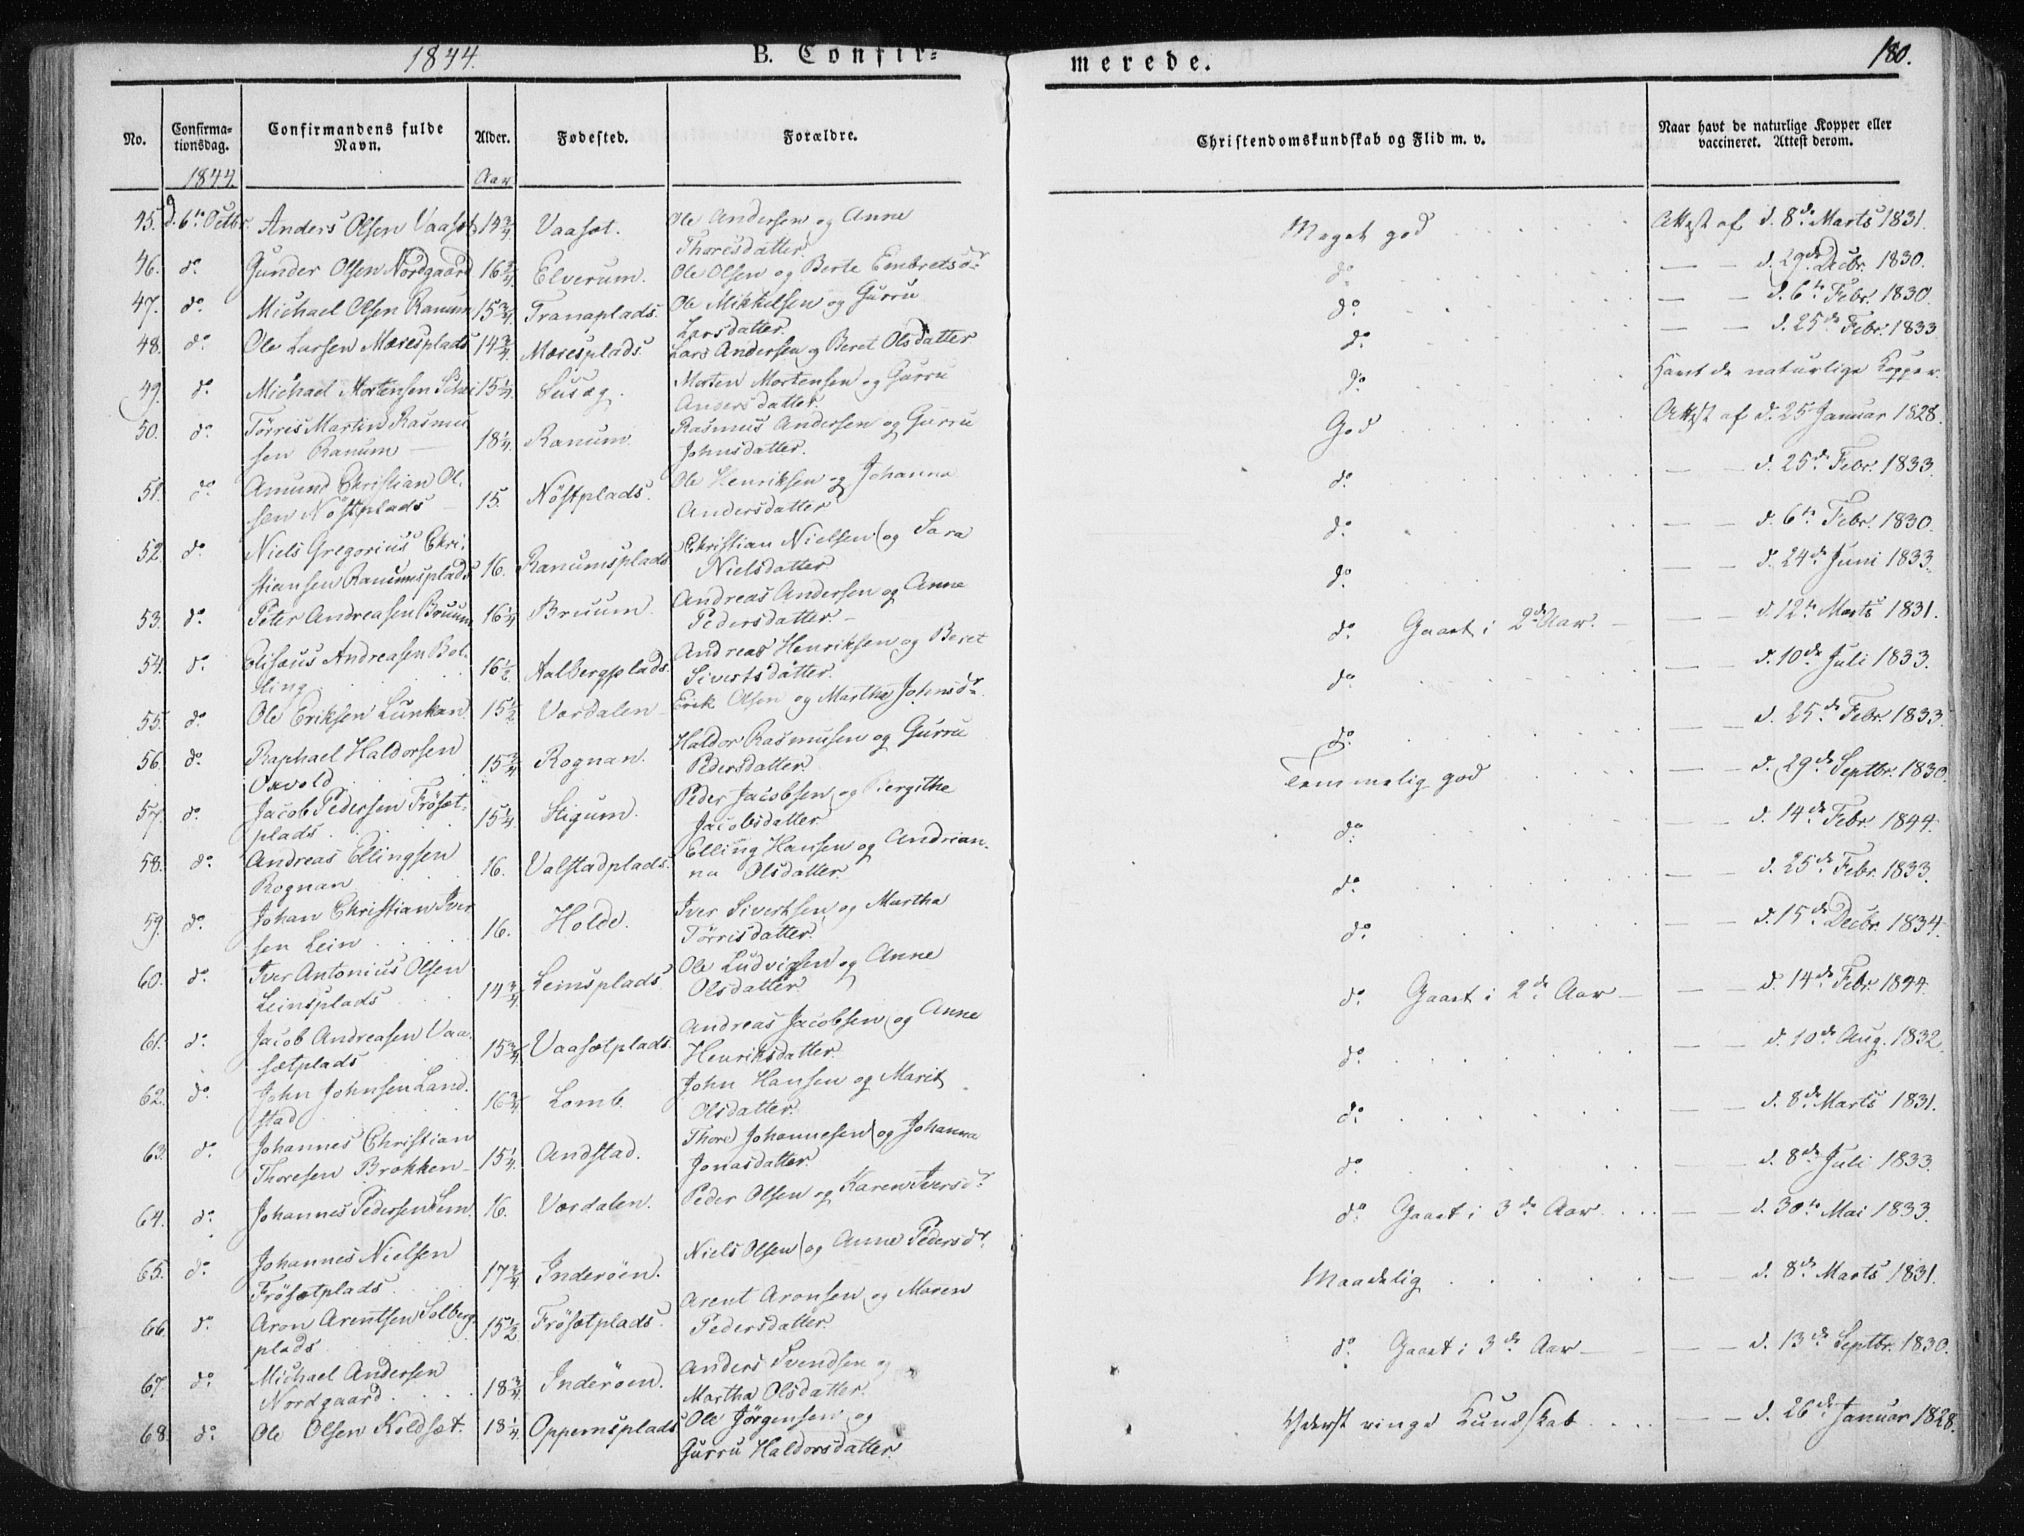 1844.
B. Confir=
merede.
180.
No.
Confirma-
tionsdag.
Confirmandens fulde
Navn.
Alder.
Fødested.
Forældre.
Christendomskundskab og Flid m. v.
Naar havt de naturlige Kopper eller
vaccineret. Attest derom.
1844.
Aar
45. d. 6te Octbr. Anders Olsen Vaaset 14 3/4 Vaaset. Ole Andersen og Anne
Thoresdatter. Meget god Attest af d. 8de Marts 1831.
46. do Gunder Olsen Nordgaard 16 3/4 Elverum. Ole Olsen og Berte Embretsdr do — — d. 29de Decbr. 1830.
47. do Michael Olsen Ranum 15 3/4 Tranaplads. Ole Mikkelsen og Gurru
Larsdatter. do — — d. 6te Febr. 1830.
48. do Ole Larsen Mæresplads 14 3/4 Mæresplads Lars Andersen og Beret Olsdatter do — — d. 25de Febr. 1833
49. do Michael Mortensen 15 1/4 Susæg. Morten Mortensen og Gurru
Andersdatter. do Havt de naturlige Kopper.
50. do Tørris Martin Rasmu
sen Ranum — 18 1/4 Ranum Rasmus Andersen og Gurru
Johnsdatter. God Attest af d. 25 Januar 1828.
51. do Amund Christian Ol.
sen Nöstplads 15. Nöstplads. Ole Henriksen og Johanna
Andersdatter do — — d. 25de Febr. 1833
52. do Niels Gregorius Chri.
stiansen Ranumsplads 16. Ranumsplads Christian Nielsen og Sara
Nielsdatter do — — d. 6te Febr. 1830.
53. do Peter Andreasen Bruum 16 1/4 Bruum. Andreas Andersen og Anne
Pedersdatter — do — — d. 24de Juni 1833.
54. do Elisæus Andreasen Bol.
ling 16 1/2 Aalbergplads. Andreas Henriksen og Beret
Sivertsdatter. do Gaaet i 2det Aar. — — — d. 12te Marts 1831.
55. do Ole Eriksen Lunkan. 15 1/2 Værdalen Erik Olsen og Martha Johnsdr do — — d. 10de Juli 1833.
56. do Raphael Haldorsen
Oxvold 15 3/4 Rognan. Haldor Rasmusen og Gurru
Pedersdatter. do — — d. 25de Febr. 1833.
57. do Jacob Pedersen Fröset.
plads 15 1/4 Stigum. Peder Jacobsen og Bergithe
Jacobsdatter Temmelig god — — d. 29de Septbr. 1830
58. do Andreas Ellingsen
Rognan 16. Valstadplads. Elling Hansen og Andrian.
na Olsdatter. do — — d. 14de Febr. 1844.
59. do Johan Christian Iver
sen Lein 16. Holde. Iver Sivertsen og Martha
Tørrisdatter. do — — d. 25de Febr. 1833.
60. do Iver Antonius Olsen
Leinsplads 14 3/4 Leinsplads. Ole Ludvigsen og Anne
Olsdatter. do — — d. 15de Decbr. 1834.
61. do Jacob Andreasen Vaa.
sætplads 15 3/4 Vaasætplads. Andreas Jacobsen og Anne
Henriksdatter. do Gaaet i 2det Aar — — — d. 14de Febr. 1844.
62. do John Johnsen Land.
stad 16 3/4 Lomb. John Hansen og Marit
Olsdatter. do — — d. 10de Aug. 1832.
63. do Johannes Christian
Thoresen Brokken 15 1/4. Andstad. Thore Johannesen og Johanna
Jonasdatter. do — — d. 8de Marts 1831.
64. do Johannes Pedersen Lem. 16. Værdalen. Peder Olsen og Karen Iversdr do — — d. 8de Juli 1833.
65. do Johannes Nielsen
Frösetplads 17 3/4 Inderöen. Niels Olsen og Anne Pedersdr. do Gaaet i 3de Aar — — d. 30te Mai 1833.
66. do Aron Arentsen Solberg
plads 15 1/2 Frösetplads. Arent Aronsen og Maren
Pedersdatter. Maadelig — — d. 8de Marts 1831.
67. do Michael Andersen
Nordgaard 18 3/4 Inderöen. Anders Svendsen og
Martha Olsdatter. do Gaaet i 3de Aar — — d. 13de Septbr. 1830.
68. do Ole Olsen Koldset. 18 1/4. Oppemsplads Ole Jörgensen og
Gurru Haldorsdatter. Yderst ringe Kundskab — — d. 26de Januar 1828.